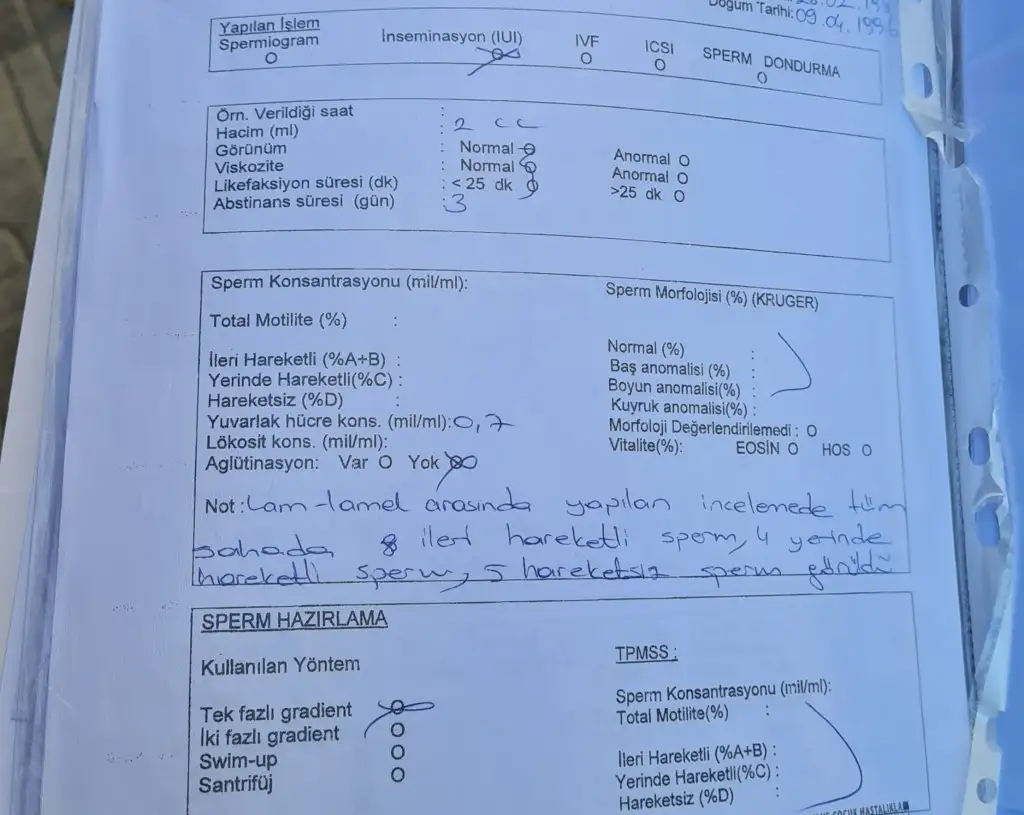 Doğum Tarihi: 09.04.1996
Yapılan İşlem
Spermiogram İnseminasyon (IUI) IVF ICSI SPERM DONDURMA
Örn. Verildiği saat :
Hacim (ml) : 2 cc
Görünüm : Normal Anormal
Viskozite : Normal Anormal
Likefaksiyon süresi (dk) : < 25 dk >25 dk
Abstinans süresi (gün) : 3
Sperm Konsantrasyonu (mil/ml): Sperm Morfolojisi (%) (KRUGER)
Total Motilite (%) :
İleri Hareketli (%A+B) : Normal (%) :
Yerinde Hareketli(%C) : Baş anomalisi (%) :
Hareketsiz (%D) : Boyun anomalisi(%) :
Yuvarlak hücre kons. (mil/ml): 0,7 Kuyruk anomalisi(%) :
Lökosit kons. (mil/ml): Morfoloji Değerlendirilemedi :
Aglütinasyon: Var Yok Vitalite(%): EOSİN HOS
Not : Lam-lamel arasında yapılan incelemede tüm
sahada 8 ileri hareketli sperm, 4 yerinde
hareketli sperm, 5 hareketsiz sperm görüldü
SPERM HAZIRLAMA
Kullanılan Yöntem TPMSS :
Tek fazlı gradient Sperm Konsantrasyonu (mil/ml):
İki fazlı gradient Total Motilite(%) :
Swim-up İleri Hareketli (%A+B) :
Santrifüj Yerinde Hareketli(%C) :
Hareketsiz (%D) :
ÇOCUK HASTALIKLA